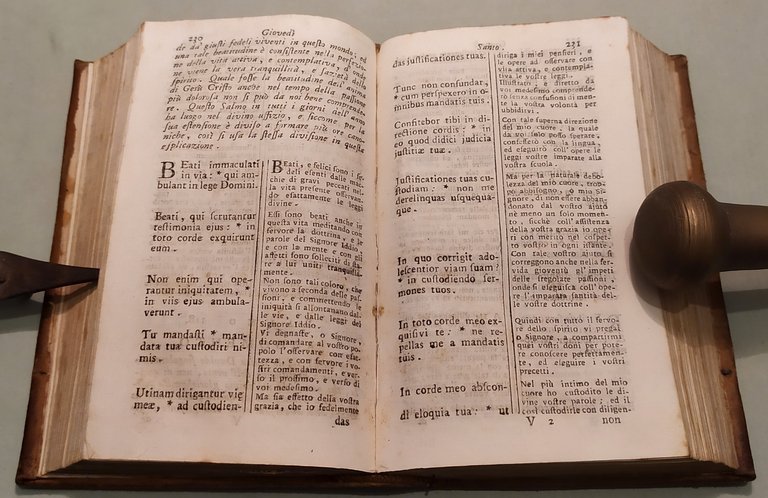 230 Giovedì
de da' giusti fedeli viventi in questo mondo; ed
una tale beatitudine è consistente nella perfezio-
ne della vita attiva, e contemplativa, d' onde
ne viene la vera tranquillità, e sazietà dello
spirito. Quale fosse la beatitudine dell' anima
di Gesù Cristo anche nel tempo della passione
più dolorosa non si può da noi bene comprende-
re. Questo Salmo in tutti i giorni dell' anno
ha luogo nel divino uffizio, e siccome per la
sua estensione è diviso a formare più ore cano-
niche, così si usa la stessa divisione in questa
esplicazione.
BEati immaculati
in via: * qui am-
bulant in lege Domini.
Beati, qui scrutantur
testimonia ejus: * in
toto corde exquirunt
eum.
Non enim qui ope-
rantur iniquitatem, *
in viis ejus ambula-
verunt.
Tu mandasti * man-
data tua custodiri ni-
mis.
Utinam dirigantur viæ
meæ, * ad custodien-
BEati, e felici sono i fe-
deli esenti dalle mac-
chie di gravi peccati nel-
la vita presente osservan-
do esattamente le leggi
divine.
Essi sono beati anche in
questa vita meditando con
fervore la dottrina, e le
parole del Signore Iddio,
e con la mente e con gli
affetti sono solleciti di sta-
re a lui uniti tranquilla-
mente.
Non sono tali coloro, che
vivono a seconda delle pas-
sioni, e commettendo l'
iniquità si allontanano dal-
le vie, e dalle leggi del
Signore Iddio.
Vi degnaste, o Signore,
di comandare al vostro po-
polo l' osservare con esat-
tezza, e con fervore i vo-
stri comandamenti, e ver-
so il prossimo, e verso di
voi medesimo.
Ma sia effetto della vostra
grazia, che io fedelmente
das
Santo. 231
das justificationes tuas.
Tunc non confundar,
* cum perspexero in o-
mnibus mandatis tuis.
Confitebor tibi in di-
rectione cordis: * in
eo quod didici judicia
justitiæ tuæ.
Justificationes tuas cu-
stodiam: * non me
derelinquas usquequa-
que.
In quo corrigit ado-
lescentior viam suam?
* in custodiendo ser-
mones tuos.
In toto corde meo ex-
quisivi te: * ne re-
pellas me a mandatis
tuis.
In corde meo abscon-
di eloquia tua: * ut
diriga i miei pensieri, e
le opere ad osservare con
vita attiva, e contempla-
tiva le vostre leggi.
Illustrato, e diretto da
voi medesimo comprende-
rò senza confusioni di men-
te la vostra volontà per
ubbidirvi.
Con tale superna direzione
del mio cuore, la quale
da voi solo posso sperare,
confesserò con la lingua,
ed eseguirò coll' opere le
leggi vostre imparate alla
vostra scuola.
Ma per la naturale debo-
lezza del mio cuore, trop-
po abbisogno, o mio Si-
gnore, di non essere abban-
donato dal vostro ajuto
nè meno un solo momen-
to, sicchè coll' assistenza
della vostra grazia io ope-
ri con merito nel cospet-
to vostro in ogni istante.
Con tale vostro ajuto si
correggono anche nella fer-
vida gioventù gl' impeti
delle sregolate passioni,
onde si eseguisca coll' ope-
re l' imparate santità del-
le vostre dottrine.
Quindi con tutto il fervo-
re dello spirito vi pregai,
o Signore, a compartirmi
quei vostri doni per pote-
re conoscere perfettamen-
te, ed eseguire i vostri
precetti.
Nel più intimo del mio
cuore ho custodito le di-
vine vostre parole; ed il
così custodirle con diligen-
V 2 non